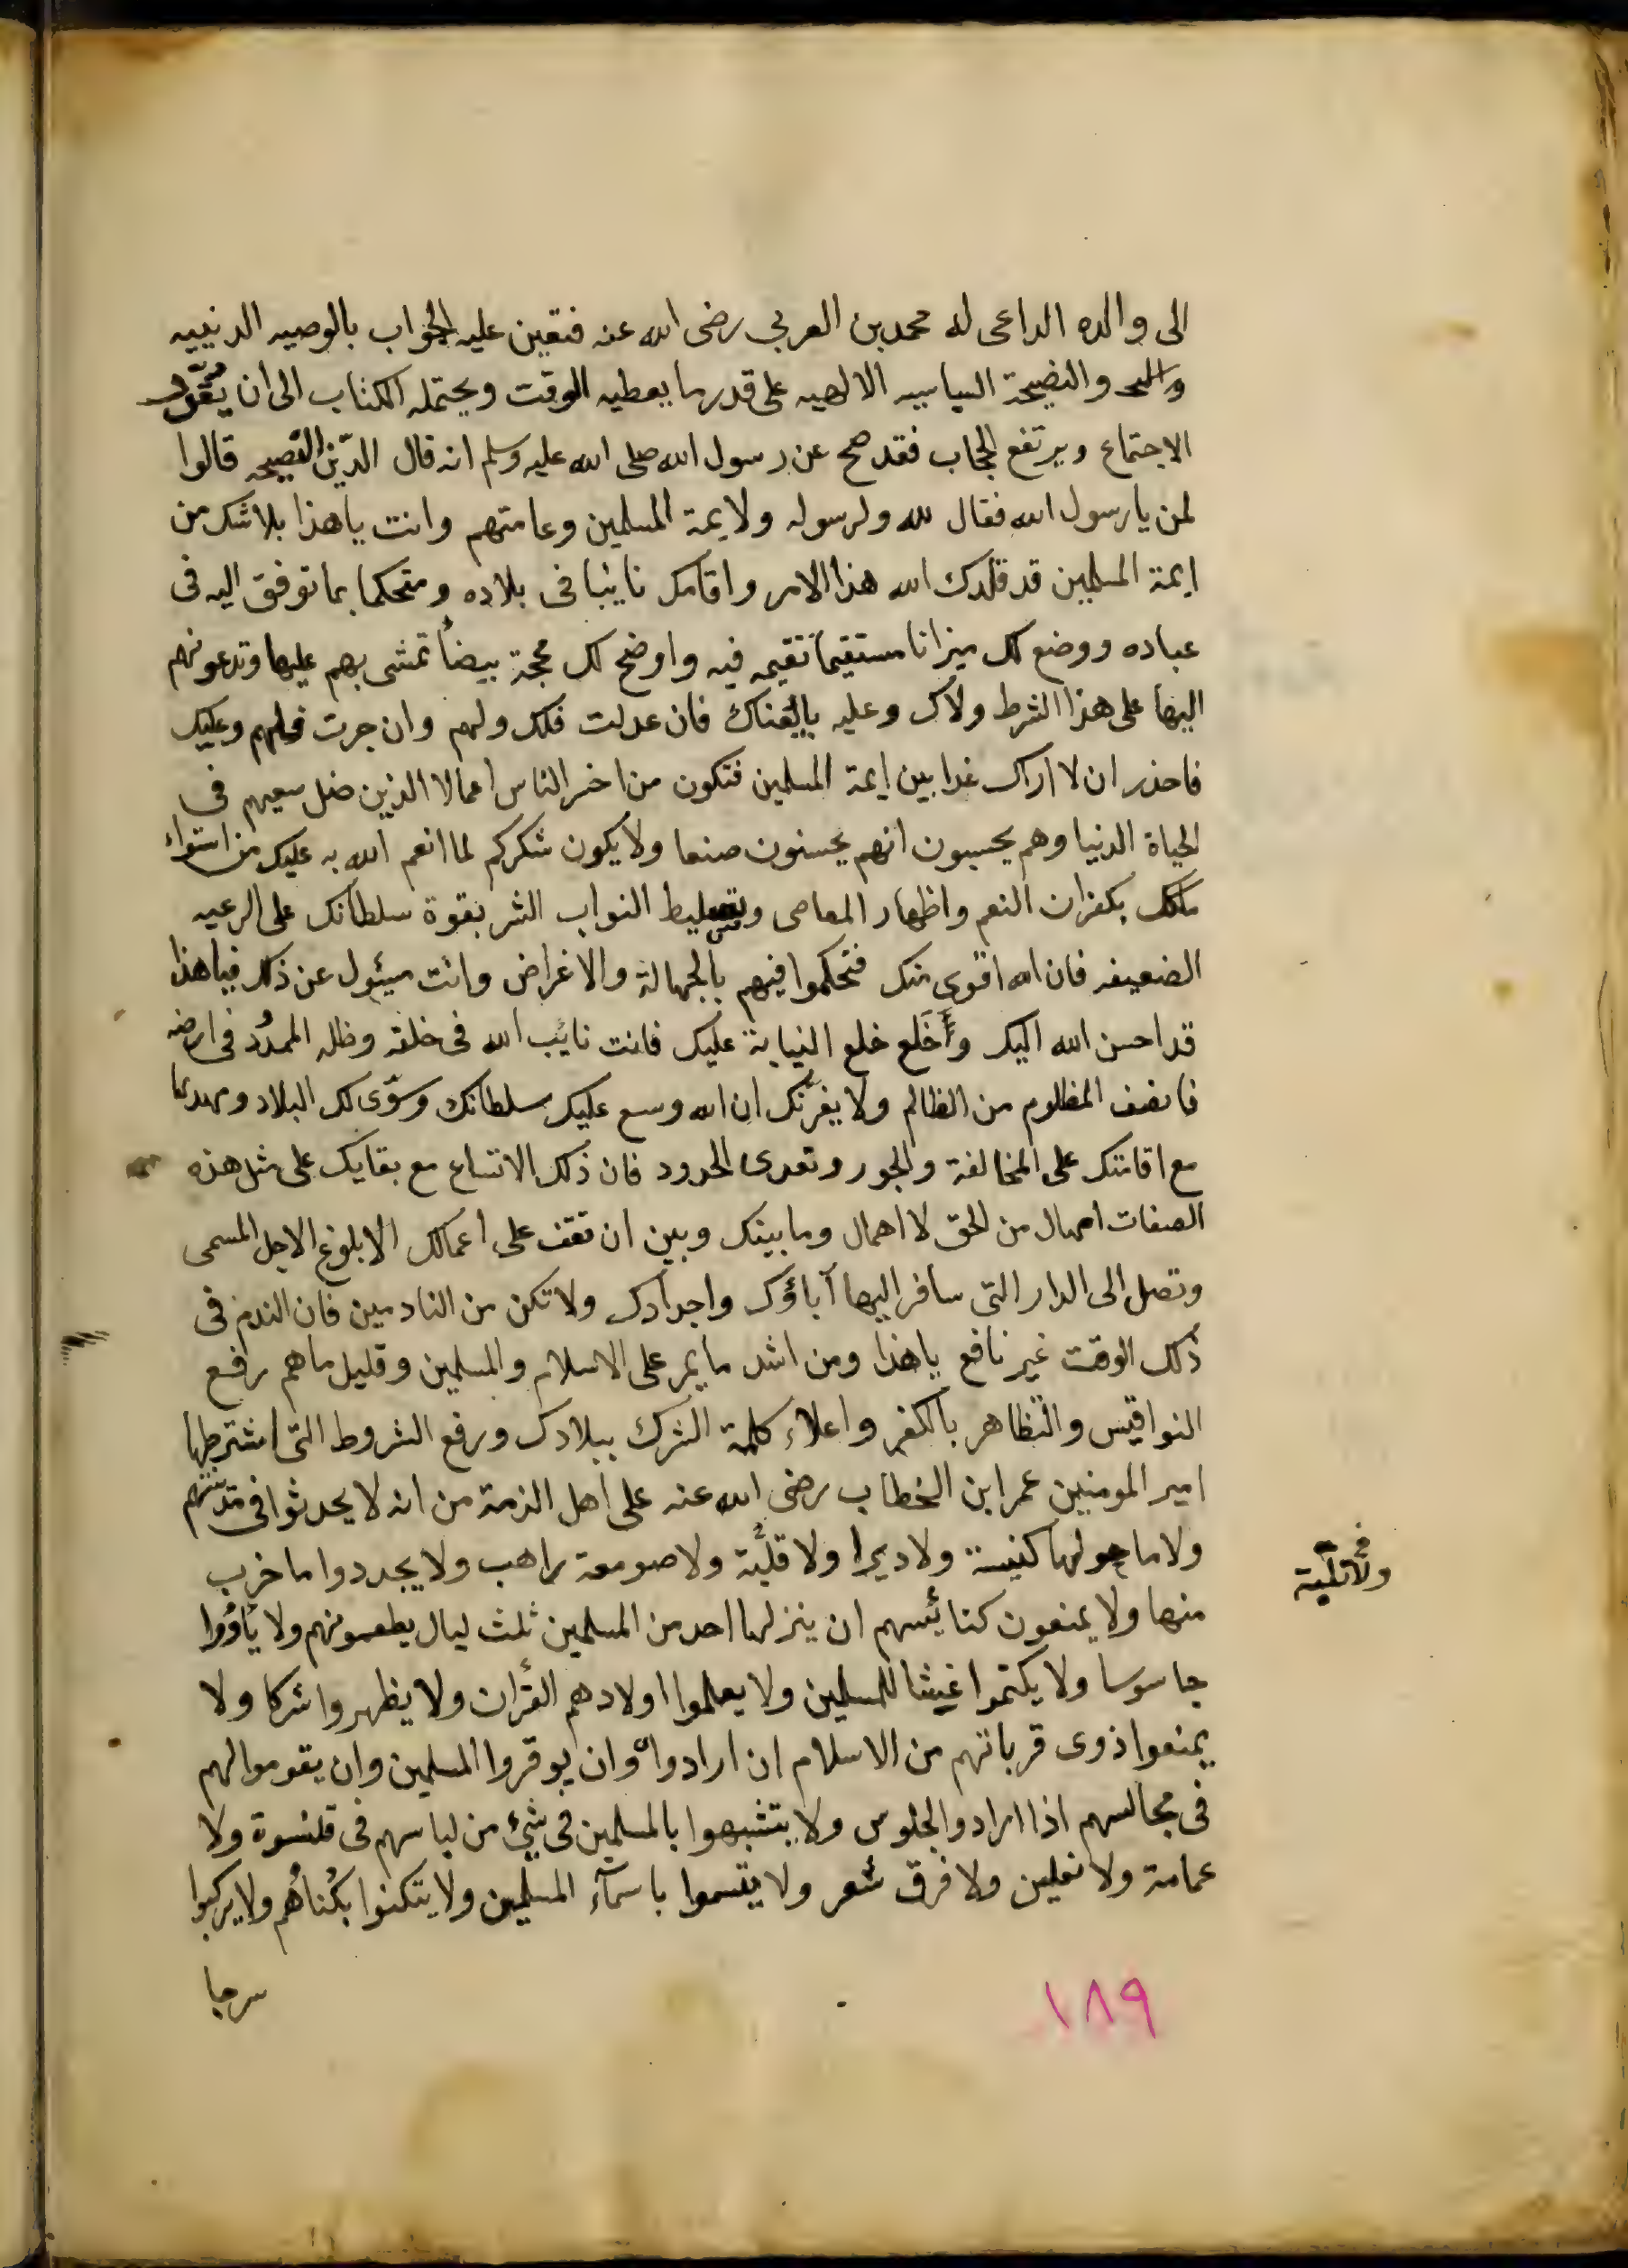 الى والده الداعى له محمد بن العربي رضى الله عنه فتعين عليه الجواب بالوصيه الدينيه
والنصيحة السياسيه الالهيه على قدر ما يعطيه الوقت ويحتمله الكتاب الى ان يُقَدّر
الاجتماع ويرتفع الحجاب فقد صح عن رسول الله صلى الله عليه وسلم انه قال الدّين النصيحه قالوا
لمن يا رسول الله فقال لله ولرسوله ولايمة المسلمين وعامتهم وانت يا هذا بلا شك من
ايمة المسلمين قد قلدك الله هذا الامر واقامك نايبا فى بلاده ومتحكما بما توفق اليه فى
عباده ووضع لك ميزانا مستقيما تقيمه فيه واوضح لك محجة بيضاً تمشى بهم عليها وتدعوهم
اليها على هذا الشرط ولاك وعليه بايعناك فان عدلت فلك ولهم وان جرت فلهم وعليك
فاحذر ان لا اراك غدا بين ايمة المسلمين فتكون من اخسر الناس اعمالا الذين ضل سعيهم فى
الحياة الدنيا وهم يحسبون انهم يحسنون صنعا ولا يكون شكركم لما انعم الله به عليك من استواء
ملكك بكفران النعم واظهار المعاصى وتسليط النواب الشر بقوة سلطانك على الرعيه
الضعيفه فان الله اقوى منك فتحكموا فيهم بالجهالة والاغراض وانت مسئول عن ذلك فيا هذا
قد احسن الله اليك وأَخَلع خلع النيابة عليك فانت نائب الله فى خلقه وظله الممدُد فى ارضه
فانصف المظلوم من الظالم ولا يغرّنك ان الله وسع عليك سلطانك وسوّى لك البلاد ومهدها
مع اقامتك على المخالفة والجور وتعدى الحدود فان ذلك الاتساع مع بقايك على مثل هذه
الصفات امهال من الحق لا اهمال وما بينك وبين ان تقف على اعمالك الا بلوغ الاجل المسمى
وتصل الى الدار التى سافر اليها آباؤك واجدادك ولا تكن من النادمين فان الندم فى
ذلك الوقت غير نافع يا هذا ومن اشد ما يمر على الاسلام والمسلمين وقليل ما هم رفع
النواقيس والتظاهر بالكفر واعلاء كلمة الشرك ببلادك ورفع الشروط التى اشترطها
امير المومنين عمر ابن الخطاب رضى الله عنه على اهل الذمة من انه لا يحدثوا فى مدينتهم
ولا ما حولها كنيسة ولا ديرا ولا قليَّة ولا صومعة راهب ولا يجددوا ما خرب
ولا قليّة
منها ولا يمنعون كنائسهم ان ينزلها احد من المسلمين ثلث ليال يطعمونهم ولا يأؤوا
جاسوسا ولا يكتموا غشا للمسلمين ولا يعلموا اولادهم القرأن ولا يظهروا شركا ولا
يمنعوا ذوى قرباتهم من الاسلام ان ارادوا وان يوقروا المسلمين وان يقوموا لهم
فى مجالسهم اذا ارادوا الجلوس ولا يتشبهوا بالمسلمين فى شيئ من لباسهم فى قلنسوة ولا
عمامة ولا نعلين ولا فرق شعر ولا يتسموا باسمآء المسلمين ولا يتكنوا بكُناُهم ولا يركبوا
سرجا
١٨٩